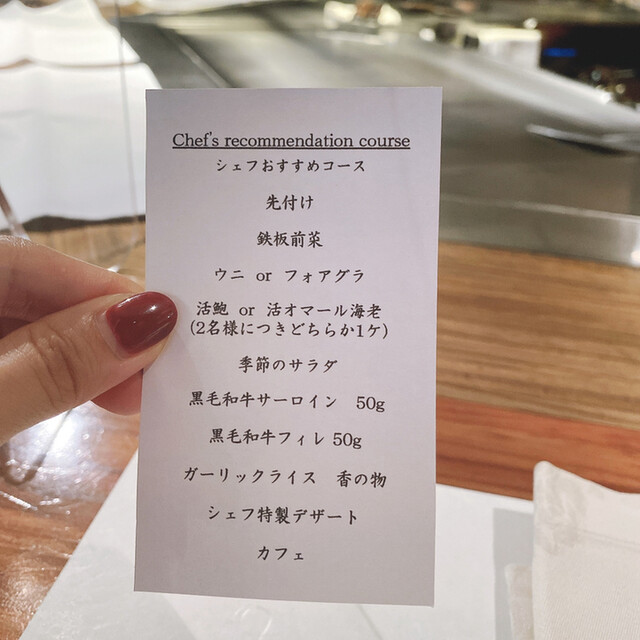 Chef's recommendation course
シェフおすすめコース
先付け
鉄板前菜
ウニ or フォアグラ
活鮑 or 活オマール海老
(2名様につきどちらか1ケ)
季節のサラダ
黒毛和牛サーロイン 50g
黒毛和牛フィレ 50g
ガーリックライス 香の物
シェフ特製デザート
カフェ